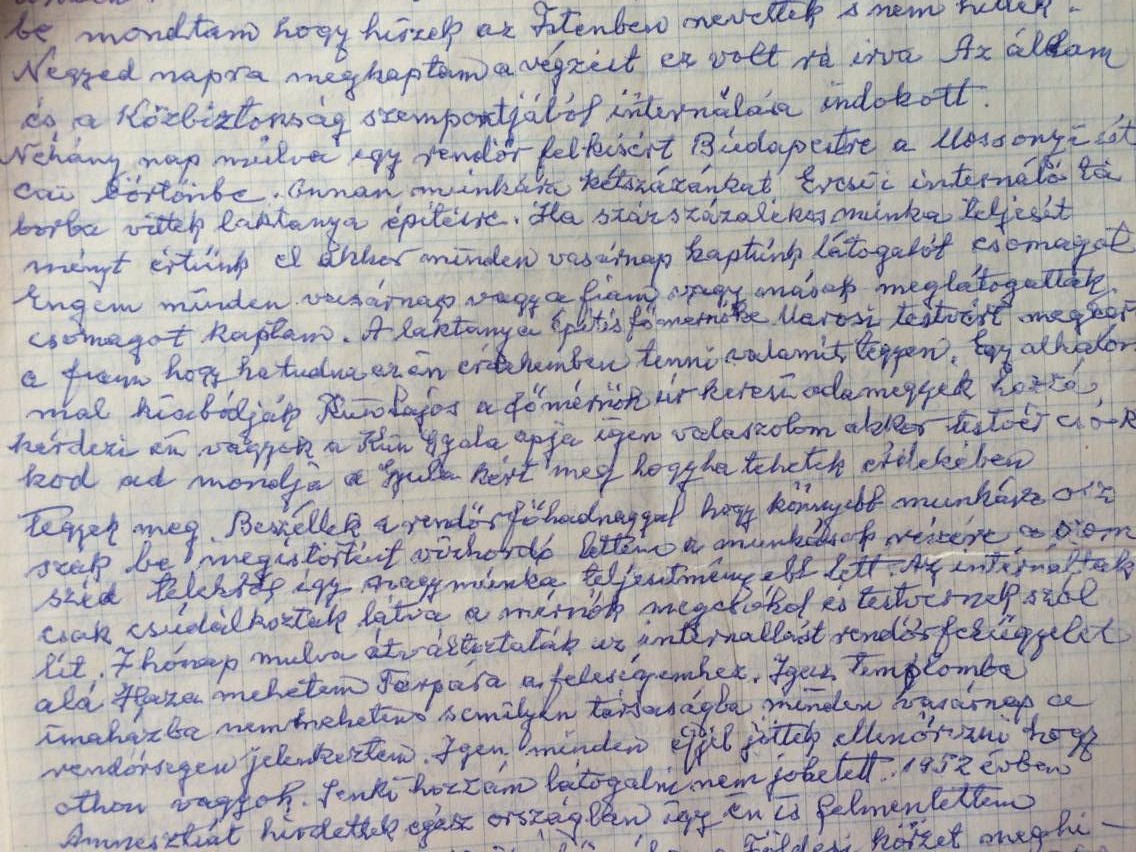 be mondtam hogy hiszek az Istenben nevettek s nem hittek.
Negyed napra megkaptam a végzést ez volt rá irva Az állam
és a Közbiztonság szempontjából internálása indokolt.
Nehány nap múlva egy rendőr felkisért Búdapestre a Mossonyi út
cai börtönbe. Onnan munkára kétszázánkat Ercsi i internáló tá
borba vittek laktanya épitésre. Ha százszázalékos munka teljesit
ményt értünk el akkor minden vasárnap kaptúnk látogatót csomagot
Engem minden vasárnap vagy a fiam vagy mások meglátogattak.
csomagot kaptam. A laktanya épités főmérnöke Marosi testvért megkér
a fiam hogy ha tudna az én érdekemben tenni valamit tegyen. Egy alkalom
mal kiabálják Kun Lajos a főmérnök úr keresi oda megyek hozzá
kérdezi én vagyok a Kun Gyula apja igen válaszolom akkor testvér csók
kod ad mondja a Gyula kért meg hogyha tehetek érdekében
tegyek meg. Beszéllek a rendőr főhadnaggyal hogy könnyebb munkára osz
szák be megistörtént vízhordó lettem a munkások részére a szom
széd telekről így nagy munka teljesitmény ebb lett. Az internáltak
csak csúdálkoztak látva a mérnök megcsókol és testvérnek szól
lit. 7 hónap mulva átváltoztaták az internallást rendőr felügyelet
alá Haza mehetem Tarpára a feleségemhez. Igen Templomba
imaházba nem mehetem semilyen társaságba minden vasárnap a
rendőrségen jelenkeztem. Igen minden éjjel jöttek ellenőrizni hogy
othon vagyok. Senki hozzám látogatni nem jöhetett. 1952 évben
Amnesztiát hirdettek egész országban így én is felmentettem
Földesi körzet meghi-